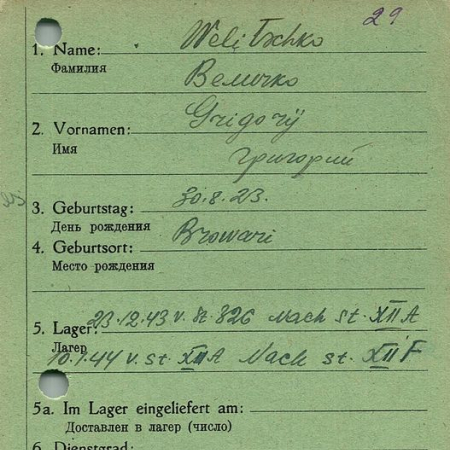 29
1. Name: Welitschko
Фамилия Величко
2. Vornamen: Grigorÿ
Имя Григорий
3. Geburtstag: 30.8.23.
День рождения
4. Geburtsort: Browari
Место рождения
5. Lager: 23.12.43 v. St. 326 Nach St. XII A
Лагер 10.1.44 v. St. XII A Nach St. XII F
5a. Im Lager eingeliefert am:
Доставлен в лагер (число)
6. Dienstgrad: